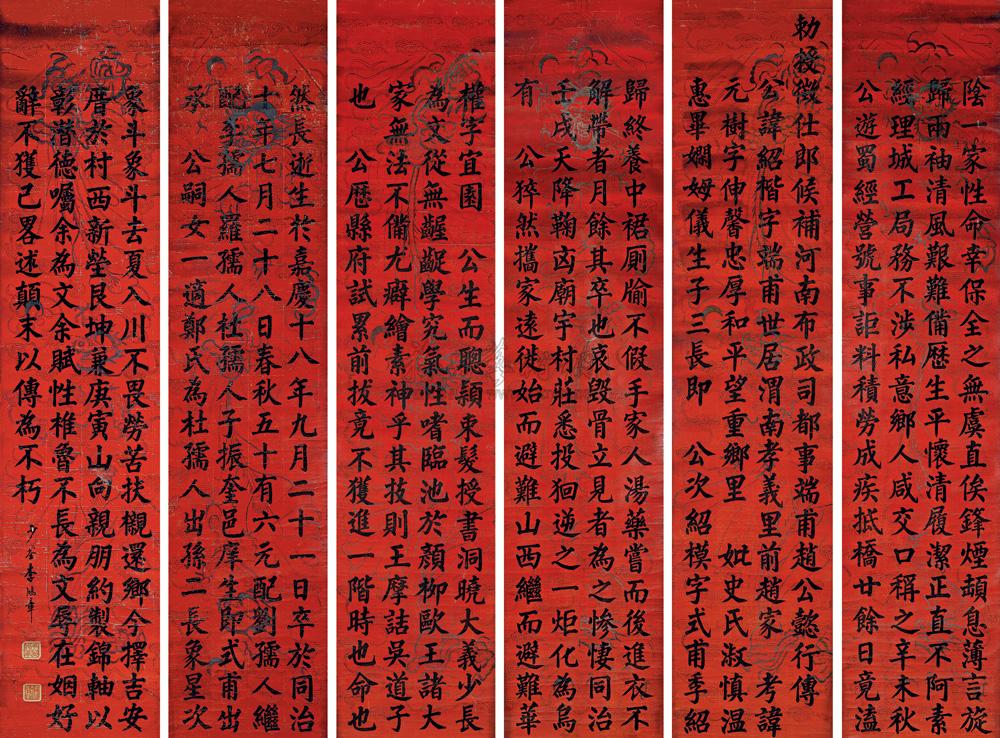 陰一家性命幸保全之無虞直俟鋒煙頡息薄言旋
歸兩袖清風艱難備歷生平懷清履潔正直不阿素
經理城工局務不涉私意鄉人咸交口稱之辛未秋
公遊蜀經營號事詎料積勞成疾抵橋廿餘日竟溘
勅授徵仕郎候補河南布政司都事瑞甫趙公懿行傳
公諱紹楷字瑞甫世居渭南孝義里前趙家 考諱
元樹字伸馨忠厚和平望重鄉里 妣史氏淑慎温
惠畢嫻姆儀生子三長即 公次紹模字式甫季紹
歸終養中裙厠牏不假手家人湯藥嘗而後進衣不
解帶者月餘其卒也哀毀骨立見者為之慘悽同治
壬戌天降鞠凶廟宇村莊悉投狛逆之一炬化為烏
有 公猝然攜家遠徙始而避難山西繼而避難華
權字宜園 公生而聰穎束髮授書洞曉大義少長
為文從無齷齪學究氣性嗜臨池於顏柳歐王諸大
家無法不備尤癖繪素神乎其技則王摩詰吳道子
也 公歷縣府試累前拔竟不獲進一階時也命也
然長逝生於嘉慶十八年九月二十一日卒於同治
十年七月二十八日春秋五十有六元配劉孺人繼
配李孺人羅孺人杜孺人子振奎邑庠生即式甫出
承 公嗣女一適鄭氏為杜孺人出孫二長象星次
象斗象斗去夏入川不畏勞苦扶櫬還鄉今擇吉安
厝於村西新塋艮坤兼庚寅山向親朋約製錦軸以
彰潛德囑余為文余賦性椎魯不長為文辱在姻好
辭不獲已畧述顛末以傳為不朽 少谷李鴻章